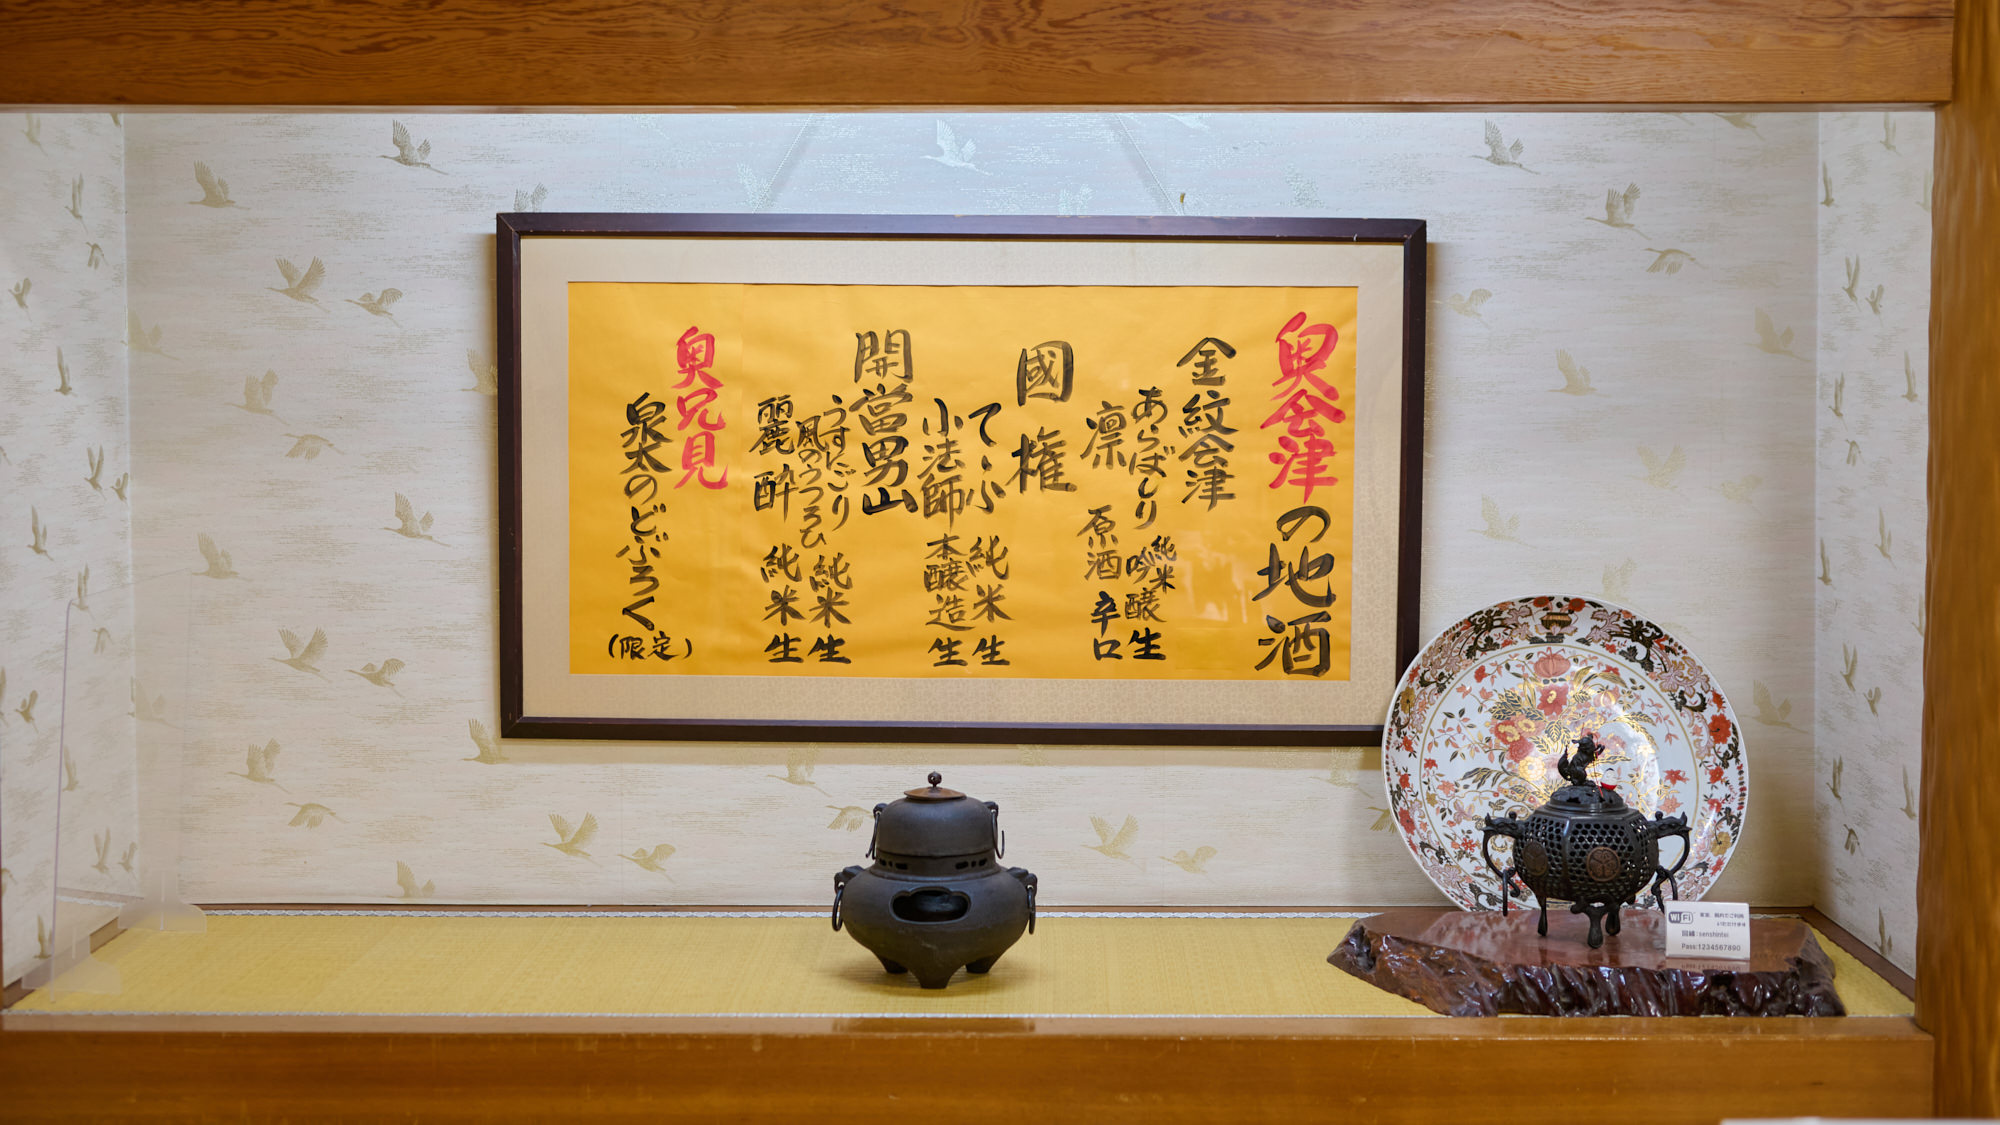 奥会津の地酒
金紋会津
あらばしり 純米吟醸生
凛 原酒 辛口
國権
てふ 純米生
小法師 本醸造生
開當男山
うすにごり 純米生
風のうつろひ
麗酔 純米生
奥只見
泉太のどぶろく
(限定)
WiFi
回線:senshintei
Pass:1234567890